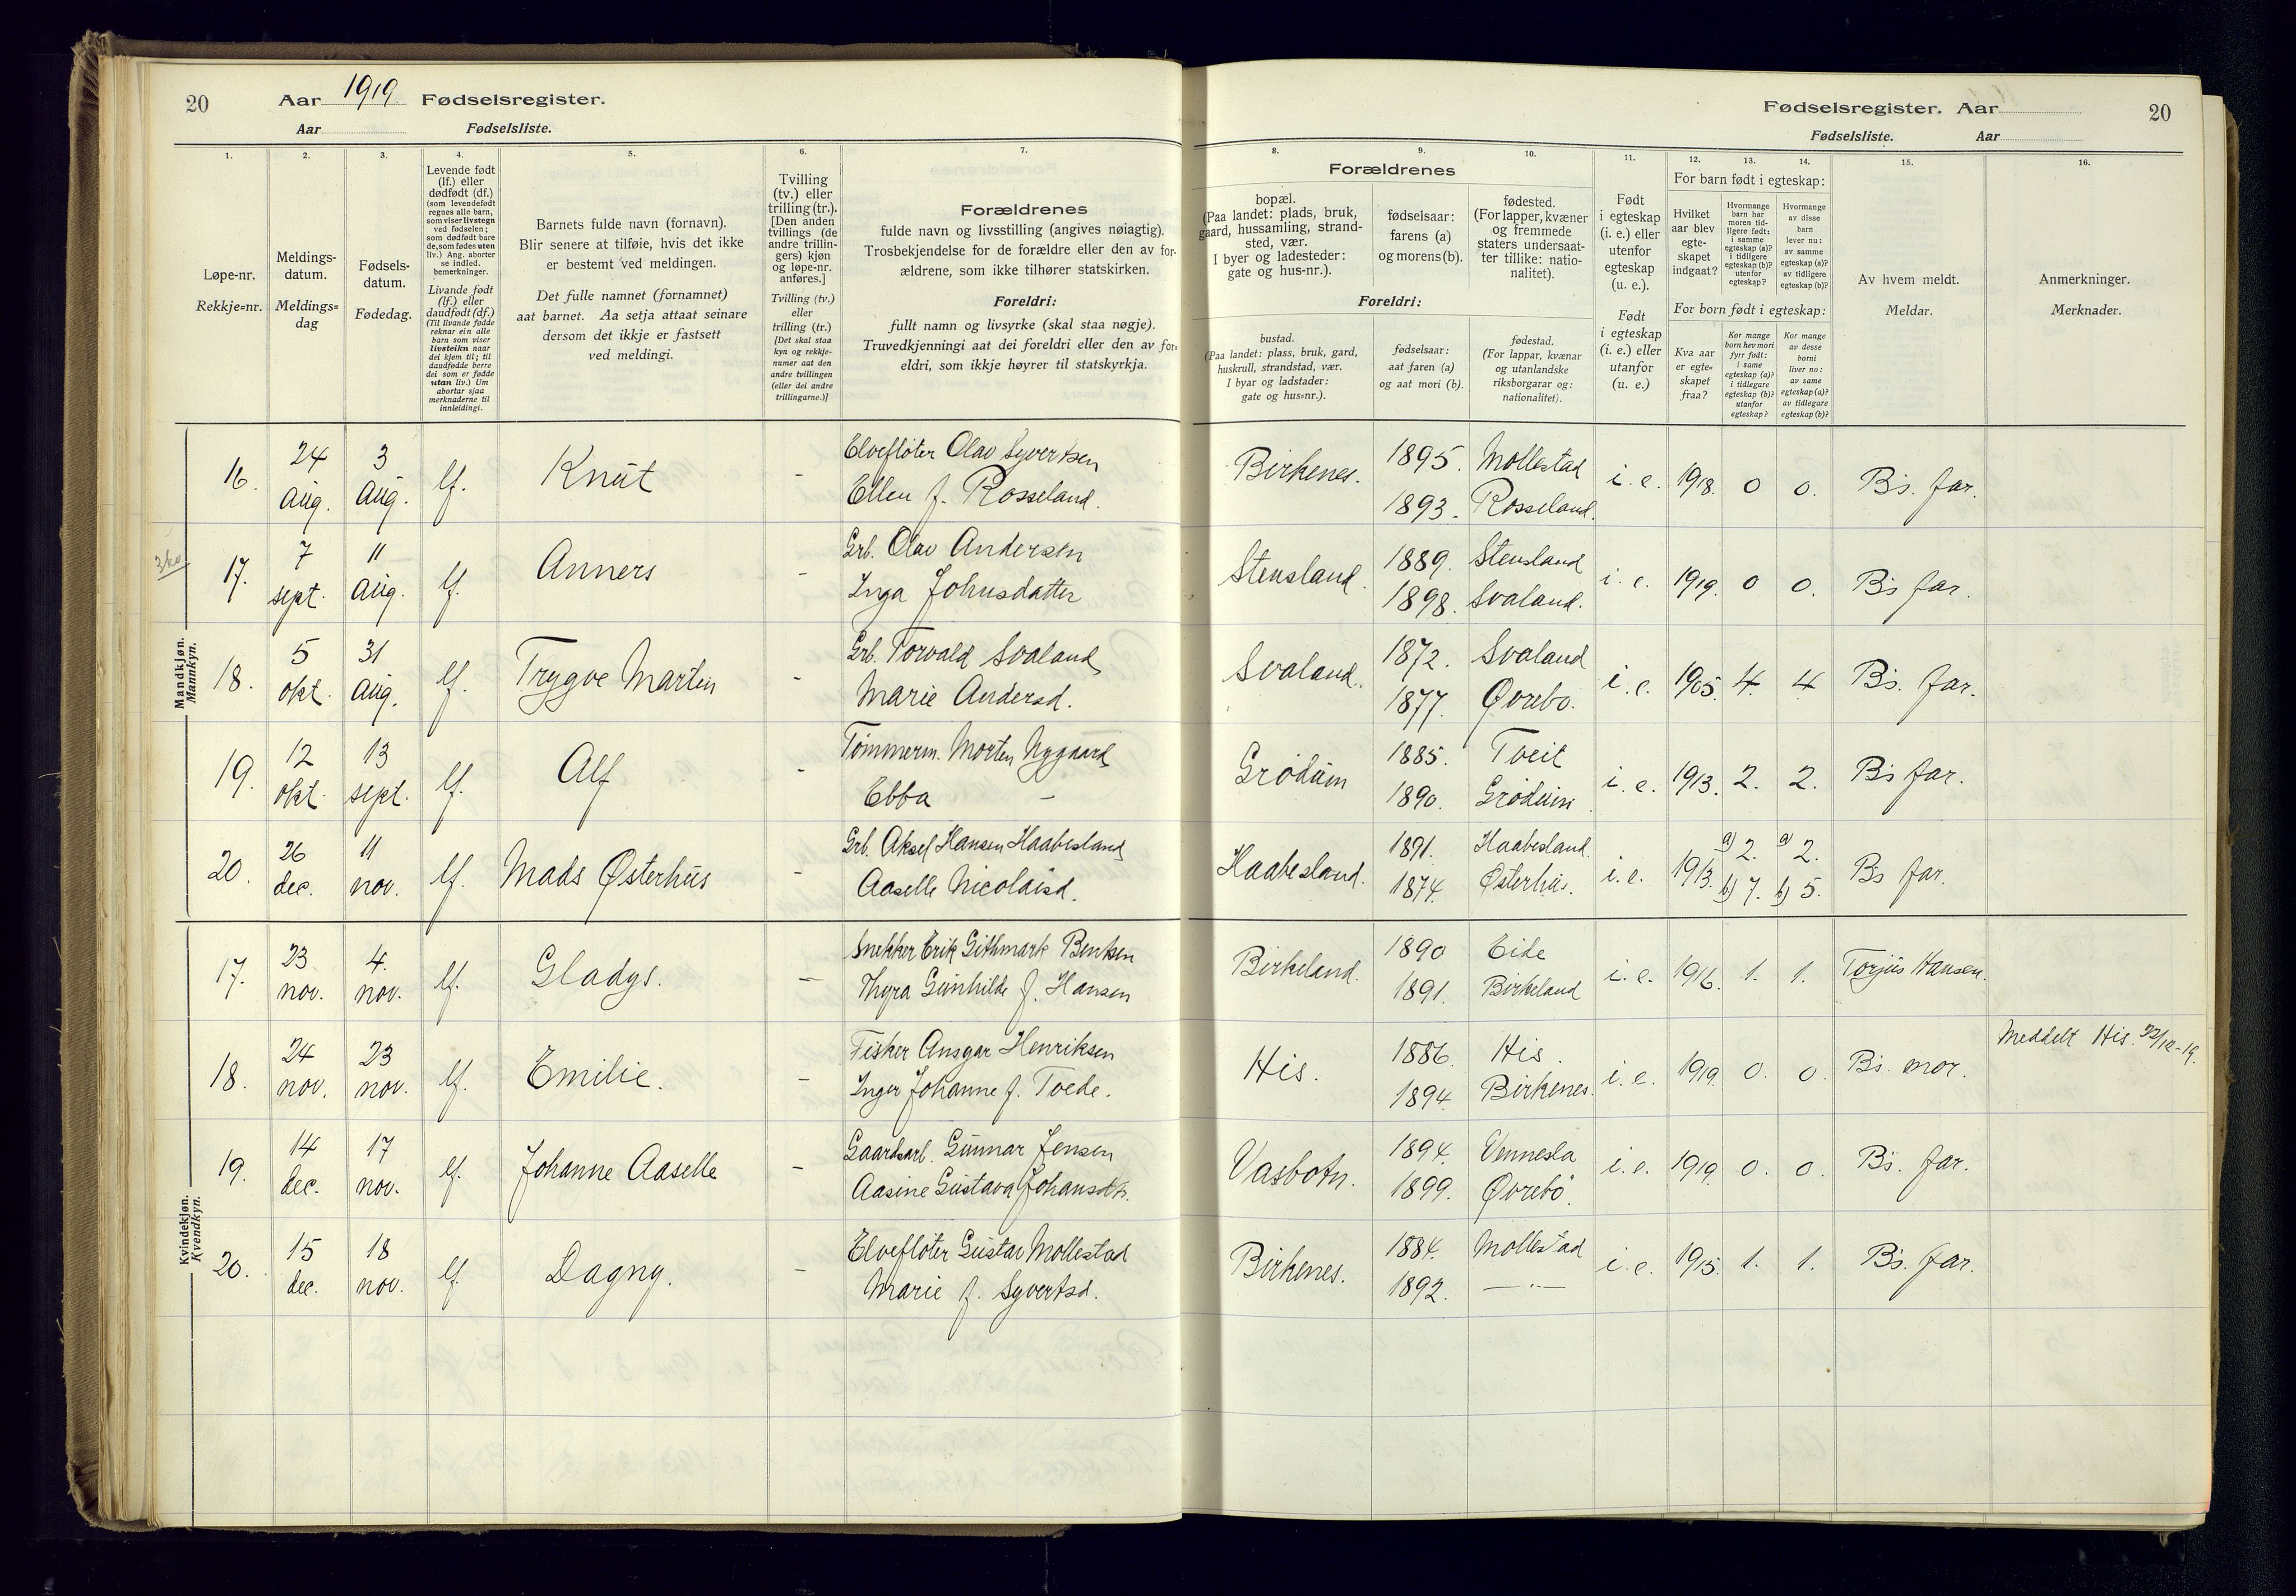 20 Aar 1919 Fødselsregister.
Aar Fødselsliste.
Fødselsregister. Aar 20
Fødselsliste. Aar
1. 2. 3. 4. 5. 6. 7. 8. 9. 10. 11. 12. 13. 14. 15. 16.
Løpe-nr.
Rekkje=nr.
Meldings-
datum.
Meldings=
dag
Fødsels-
datum.
Fødedag.
Levende født
(lf.) eller
dødfødt (df.)
(som levendefødt
regnes alle barn,
som viser livstegn
ved fødselen;
som dødfødt bare
de, som fødes uten
liv.) Ang. aborter
se indled.
bemerkninger.
Livande født
(lf.) eller
daudfødt (df.)
(Til livande fødde
reknar ein alle
barn som viser
livsteikn naar
dei kjem til; til
daudfødde berre
dei som er fødde
utan liv.) Um
abortar sjaa
merknaderne til
innleidingi.
Barnets fulde navn (fornavn).
Blir senere at tilføie, hvis det ikke
er bestemt ved meldingen.
Det fulle namnet (fornamnet)
aat barnet. Aa setja attaat seinare
dersom det ikkje er fastsett
ved meldingi.
Tvilling
(tv.) eller
trilling (tr.).
[Den anden
tvillings (de
andre trillin-
gers) kjøn
og løpe-nr.
anføres.]
Tvilling (tv.)
eller
trilling (tr.)
[Det skal staa
kyn og rekkje-
numer aat den
andre tvillingen
(eller dei andre
trillingarne.)]
Forældrenes
fulde navn og livsstilling (angives nøiagtig).
Trosbekjendelse for de forældre eller den av for-
ældrene, som ikke tilhører statskirken.
Foreldri:
fullt namn og livsyrke (skal staa nøgje).
Truvedkjenningi aat dei foreldri eller den av for=
eldri, som ikkje høyrer til statskyrkja.
Forældrenes
bopæl.
(Paa landet: plads, bruk,
gaard, hussamling, strand-
sted, vær.
I byer og ladesteder:
gate og hus-nr.).
fødselsaar:
farens (a)
og morens (b).
fødested.
(For lapper, kvæner
og fremmede
staters undersaat-
ter tillike: natio-
nalitet).
Foreldri:
bustad.
(Paa landet: plass, bruk, gard,
huskrull, strandstad, vær.
I byar og ladstader:
gate og hus=nr.).
fødselsaar:
aat faren (a)
og aat mori (b).
fødestad.
(For lappar, kvænar
og utanlandske
riksborgarar og:
nationalitet).
Født
i egteskap
(i. e.) eller
utenfor
egteskap
(u. e.).
Født
i egteskap
(i. e.) eller
utanfor
(u. e.)
For barn født i egteskap:
Hvilket
aar blev
egte-
skapet
indgaat?
Hvormange
barn har
moren tid-
ligere født:
i samme
egteskap (a)?
i tidligere
egteskap (b)?
utenfor
egteskap?
Hvormange
av disse
barn
lever nu:
av samme
egteskap (a)?
av tidligere
egteskap (b)?
For born født i egteskap:
Kva aar
er egte=
skapet
fraa?
Kor mange
born hev mori
fyrr født:
i same
egteskap (a)?
i tidlegare
egteskap (b)?
utanfor
egteskap?
Kor mange
av desse
borni
liver no:
av same
egteskap (a)?
av tidlegare
egteskap (b)?
Av hvem meldt.
Meldar.
Anmerkninger.
Merknader.
Mandkjøn.
Mannkyn.
16. 24 aug. 3 aug. lf. Knut - Elvefløter Olav Syvertsen
Ellen f. Rosseland. Birkenes. 1895. Mollestad
1893. Rosseland. i. e. 1918. 0 0. B's. far.
17. 7 sept. 11 aug. lf. Anners - Grb. Olav Andersen
Inga Johnsdatter Stensland. 1889. Stensland
1898. Svaland. i. e. 1919. 0 0. B's far.
18. 5 okt. 31 aug. lf. Trygve Marten - Grb. Torvald Svaland
Marie Andersd. Svaland. 1872. Svaland
1877. Øvrebo. i. e. 1905. 4. 4 B's. far.
19. 12 okt. 13 sept. lf. Alf - Tømmerm. Morten Nygaard
Ebba - Grødum 1885. Tveit
1890. Grødum i. e. 1913. 2. 2. B's far.
20. 26 dec. 11 nov. lf. Mads Østerhus - Grb. Aksel Hansen Haabesland
Aaselle Nicolaisd. Haabesland. 1891. Haabesland.
1874. Østerhus. i. e. 1913. a) 2. b) 7. a) 2. b) 5. Bs far.
Kvindekjøn.
Kvendkyn.
17. 23 nov. 4. nov. lf. Gladys. - Snekker Erik Githmark Bentsen
Thyra Gunhilde f. Hansen Birkeland. 1890 Eide
1891. Birkeland i. e. 1916. 1. 1. Torjus Hansen.
18. 24 nov. 23 nov. lf. Emilie. - Fisker Ansgar Henriksen
Inger Johanne f. Tvede. His. 1886. His.
1894. Birkenes. i. e. 1919. 0. 0. B's. mor. Meddelt His. /12-19.
19. 14 dec. 17 nov. lf. Johanne Aaselle - Gaardsarb. Gunnar Jensen
Aasine Gustava Johansdtr. Vasbotn. 1894. Vennesla
1899. Øvrebö. i. e. 1919. 0. 0. B's. far.
20. 15 dec. 18 nov. lf Dagny. - Elvefløter Gustav Mollestad
Marie f. Syvertsd. Birkenes. 1884. Mollestad
1892. —"— i. e. 1915. 1. 1. B's. far.